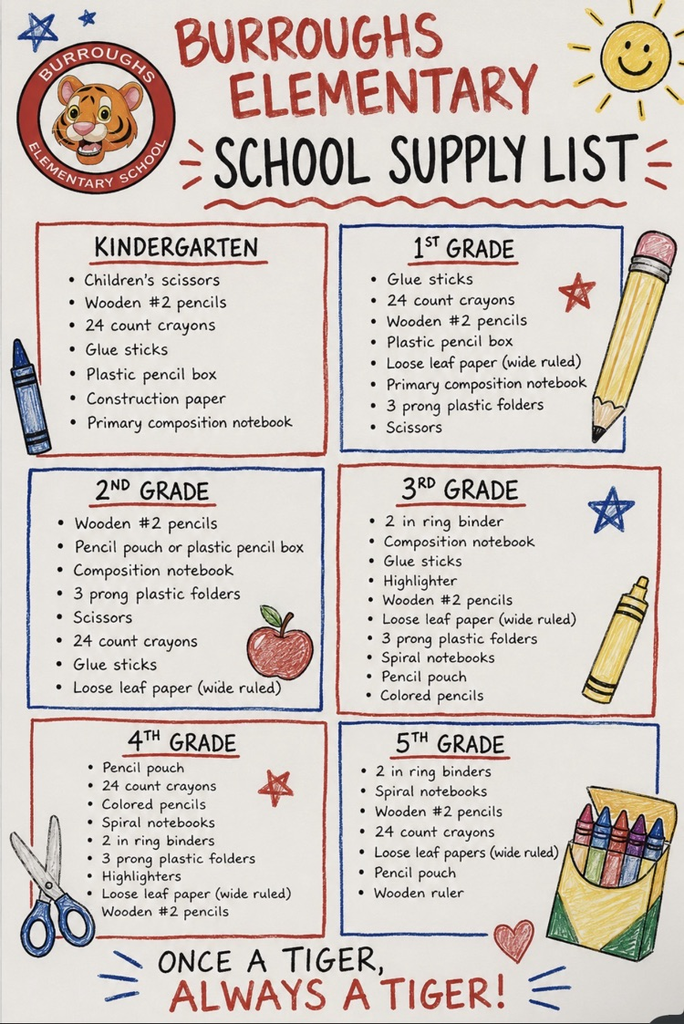 BURROUGHS
ELEMENTARY SCHOOL
BURROUGHS
ELEMENTARY
SCHOOL SUPPLY LIST
KINDERGARTEN
• Children's scissors
• Wooden #2 pencils
• 24 count crayons
• Glue sticks
• Plastic pencil box
• Construction paper
• Primary composition notebook
1ST GRADE
• Glue sticks
• 24 count crayons
• Wooden #2 pencils
• Plastic pencil box
• Loose leaf paper (wide ruled)
• Primary composition notebook
• 3 prong plastic folders
• Scissors
2ND GRADE
• Wooden #2 pencils
• Pencil pouch or plastic pencil box
• Composition notebook
• 3 prong plastic folders
• Scissors
• 24 count crayons
• Glue sticks
• Loose leaf paper (wide ruled)
3RD GRADE
• 2 in ring binder
• Composition notebook
• Glue sticks
• Highlighter
• Wooden #2 pencils
• Loose leaf paper (wide ruled)
• 3 prong plastic folders
• Spiral notebooks
• Pencil pouch
• Colored pencils
4TH GRADE
• Pencil pouch
• 24 count crayons
• Colored pencils
• Spiral notebooks
• 2 in ring binders
• 3 prong plastic folders
• Highlighters
• Loose leaf paper (wide ruled)
Wooden #2 pencils
5TH GRADE
• 2 in ring binders
• Spiral notebooks
• Wooden #2 pencils
• 24 count crayons
• Loose leaf papers (wide ruled)
• Pencil pouch
• Wooden ruler
ONCE A TIGER,
ALWAYS A TIGER!